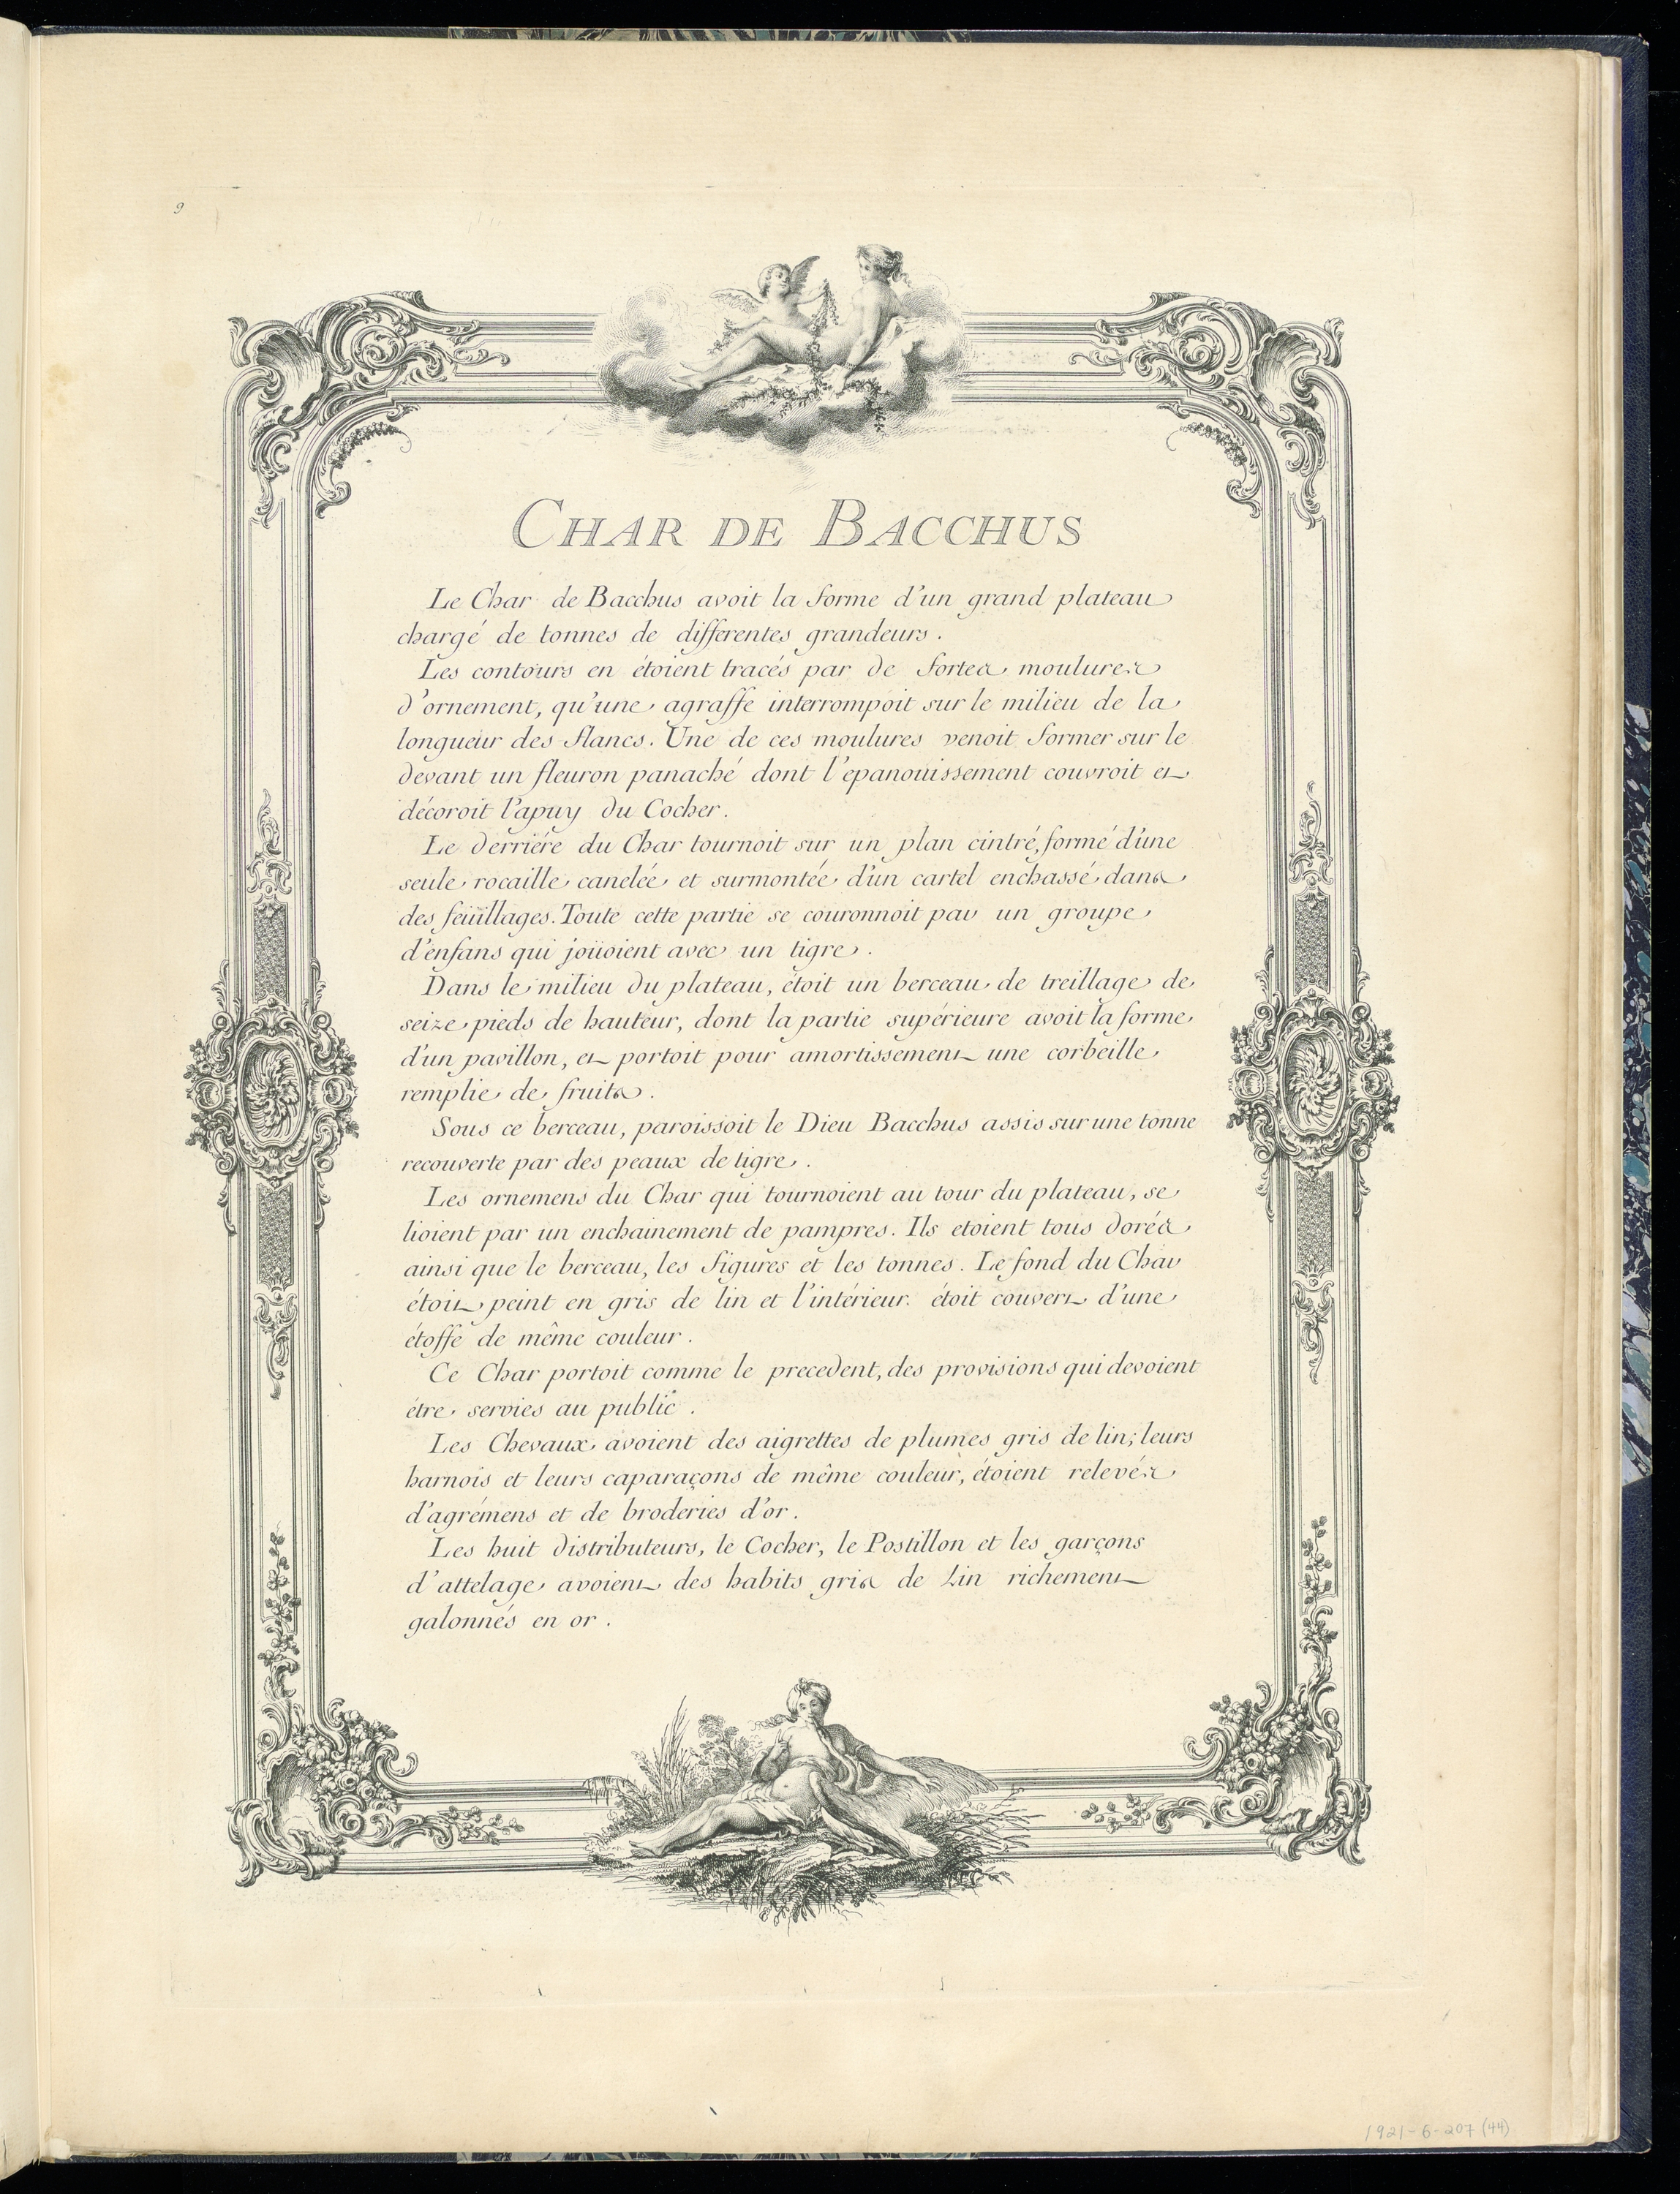 9
CHAR DE BACCHUS
Le Char de Bacchus avoit la forme d'un grand plateau
chargé de tonnes de differentes grandeurs.
Les contours en étoient tracés par de fortes moulures
d'ornement, qu'une agraffe interrompoit sur le milieu de la
longueur des flancs. Une de ces moulures venoit former sur le
devant un fleuron panaché dont l'epanouissement couvroit et
décoroit l'apuy du Cocher.
Le derriére du Char tournoit sur un plan cintré, formé d'une
seule rocaille canelée et surmontée d'un cartel enchassé dans
des feüillages. Toute cette partie se couronnoit par un groupe
d'enfans qui joüoient avec un tigre.
Dans le milieu du plateau, étoit un berceau de treillage de
seize pieds de hauteur, dont la partie supérieure avoit la forme
d'un pavillon, et portoit pour amortissement une corbeille
remplie de fruits.
Sous ce berceau, paroissoit le Dieu Bacchus assis sur une tonne
recouverte par des peaux de tigre.
Les ornemens du Char qui tournoient au tour du plateau, se
lioient par un enchainement de pampres. Ils etoient tous dorés
ainsi que le berceau, les figures et les tonnes. Le fond du Char
étoit peint en gris de lin et l'intérieur étoit couvert d'une
étoffe de même couleur.
Ce Char portoit comme le precedent, des provisions qui devoient
étre servies au public.
Les Chevaux avoient des aigrettes de plumes gris de lin; leurs
harnois et leurs caparaçons de même couleur, étoient relevés
d'agrémens et de broderies d'or.
Les huit distributeurs, le Cocher, le Postillon et les garçons
d'attelage avoient des habits gris de Lin richement
galonnés en or.
1921-6-207 (44)